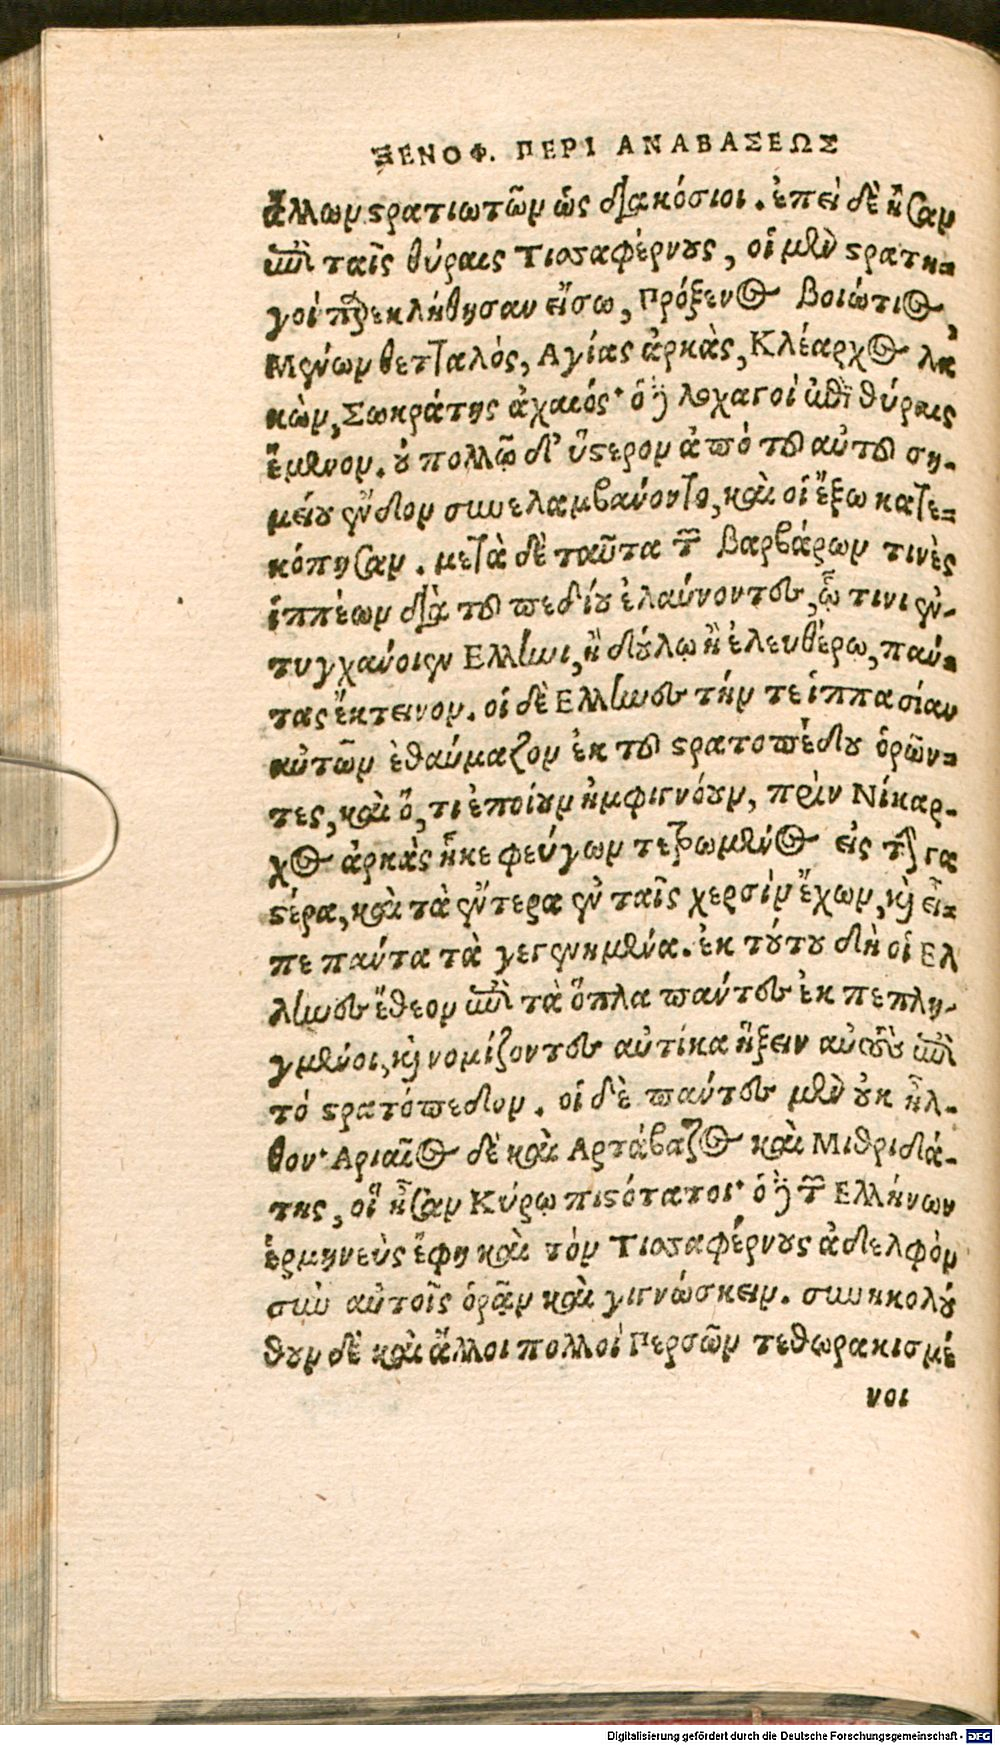 ΞΕΝΟΦ. ΠΕΡΙ ΑΝΑΒΑΣΕΩΣ
ἄλλων στρατιωτῶν ὡς διακόσιοι. ἐπεὶ δὲ ἦσαν
ἐπὶ ταῖς θύραις Τισσαφέρνους, οἱ μὲν στρατη-
γοὶ παρεκλήθησαν εἴσω, Πρόξενος Βοιώτιος,
Μένων θετταλός, Αγίας ἀρκὰς, Κλέαρχος λα
κὼν, Σωκράτης ἀχαιός· οἱ δὲ λοχαγοὶ ἐπὶ θύραις
ἔμενον. οὐ πολλῷ δ' ὕστερον ἀπὸ τοῦ αὐτοῦ ση-
μείου ἔνδον συνελαμβάνοντο, καὶ οἱ ἔξω κατε-
κόπησαν. μετὰ δὲ ταῦτα τῶν βαρβάρων τινὲς
ἱππέων διὰ τοῦ πεδίου ἐλαύνοντες, ᾧ τινι ἐν-
τυγχάνοιεν Ελληνι, ἢ δούλῳ ἢ ἐλευθέρῳ, πάν-
τας ἔκτεινον. οἱ δὲ Ελληνες τήν τε ἱππασίαν
αὐτῶν ἐθαύμαζον ἐκ τοῦ στρατοπέδου ὁρῶν-
τες, καὶ ὅ, τι ἐποίουν ἠμφιγνόουν, πρὶν Νίκαρ-
χος ἀρκὰς ἧκε φεύγων τετρωμένος εἰς τὴν γα
στέρα, καὶ τὰ ἔντερα ἐν ταῖς χερσὶν ἔχων, καὶ εἶ-
πε πάντα τὰ γεγενημένα. ἐκ τούτου δὴ οἱ Ελ
ληνες ἔθεον ἐπὶ τὰ ὅπλα πάντες ἐκπεπλη-
γμένοι, καὶ νομίζοντες αὐτίκα ἥξειν αὐτοὺς ἐπὶ
τὸ στρατόπεδον. οἱ δὲ πάντες μὲν οὐκ ἦλ-
θον· Αριαῖος δὲ καὶ Αρτάβαζος καὶ Μιθριδά-
της, οἳ ἦσαν Κύρῳ πιστότατοι· ὁ δὲ τῶν Ελλήνων
ἑρμηνεὺς ἔφη καὶ τὸν Τισσαφέρνους ἀδελφὸν
σὺν αὐτοῖς ὁρᾶν καὶ γιγνώσκειν. συνηκολού
θουν δὲ καὶ ἄλλοι πολλοὶ Περσῶν τεθωρακισμέ
νοι
Digitalisierung gefördert durch die Deutsche Forschungsgemeinschaft - DFG